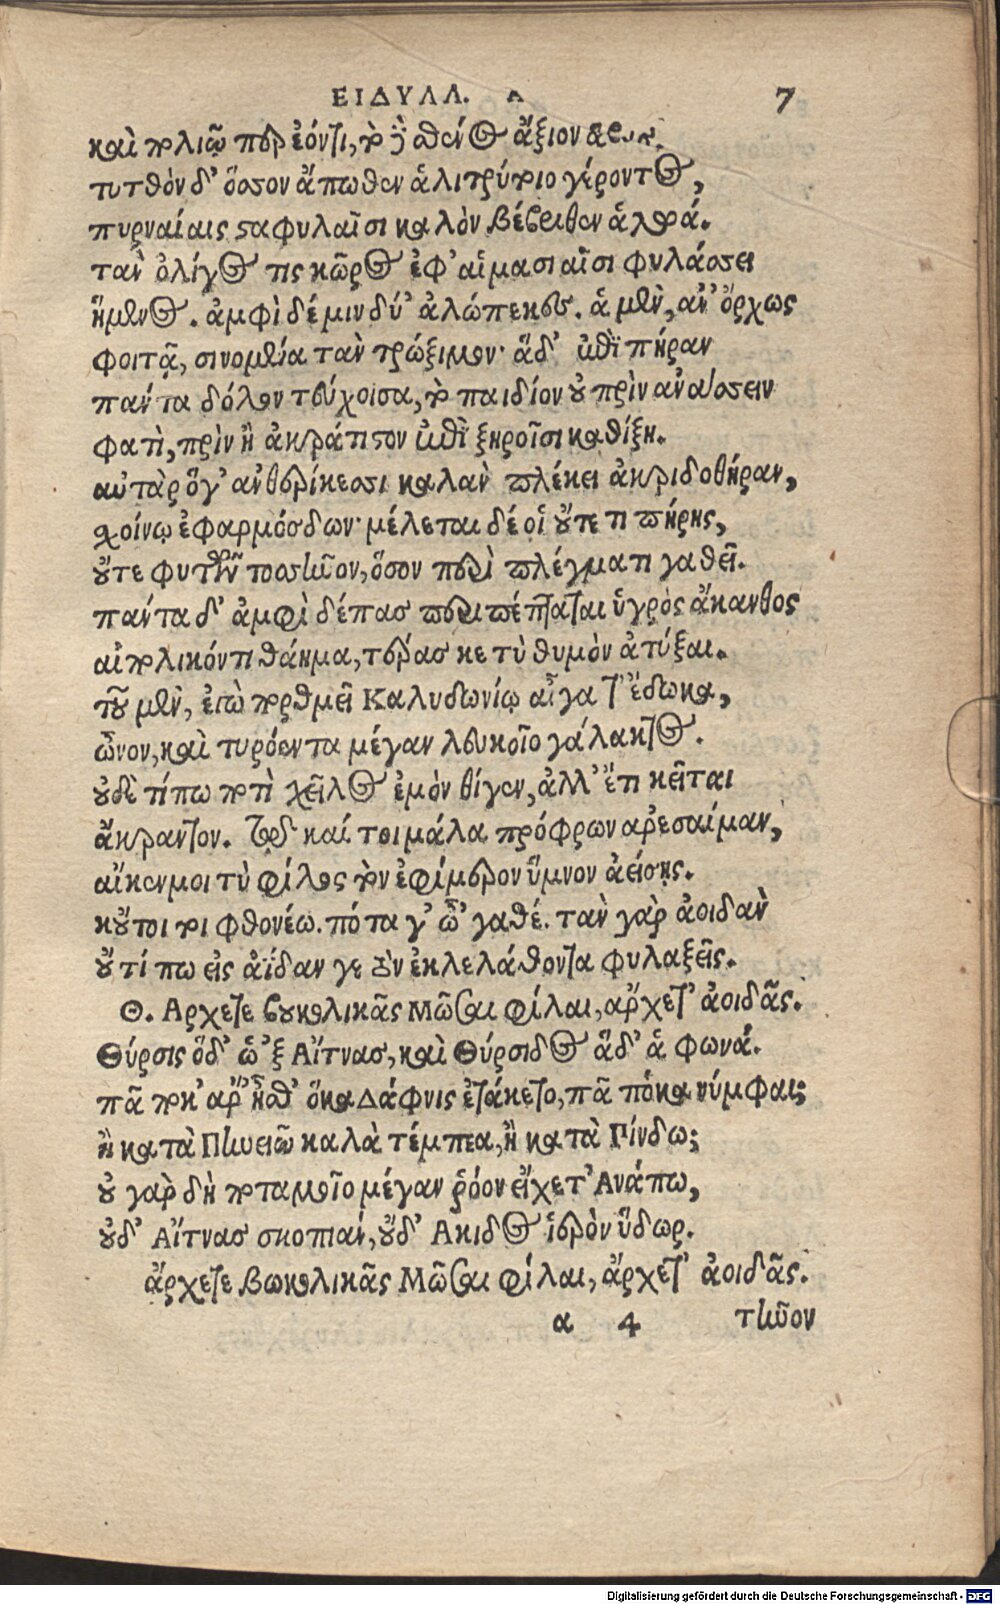 ΕΙΔΥΛΛ. Α 7
καὶ πολιῷ περ ἐόντι, τὸ γὰρ σθένος ἄξιον ἅβας.
τυτθὸν δ' ὅσσον ἄπωθεν ἁλιτρύτοιο γέροντος,
πυρναίαις σταφυλαῖσι καλὸν βέβριθεν ἀλωά.
τὰν ὀλίγος τις κῶρος ἐφ' αἱμασιαῖσι φυλάσσει
ἥμενος. ἀμφὶ δέ μιν δύ' ἀλώπεκες. ἁ μὲν, ἀν' ὄρχως
φοιτᾷ, σινομένα τὰν τρώξιμον· ἅδ' ἐπὶ πήραν
πάντα δόλον τεύχοισα, τὸ παιδίον οὐ πρὶν ἀνασσειν
φατὶ, πρὶν ἢ ἀκράτιστον ἐπὶ ξηροῖσι καθίξῃ.
αὐτὰρ ὅγ' ἀνθερίκεσσι καλὰν πλέκει ἀκριδοθήραν,
σχοίνῳ ἐφαρμόσδων· μέλεται δέ οἱ οὔτε τι πήρης,
οὔτε φυτῶν τοσσῆνον, ὅσον περὶ πλέγματι γαθεῖ.
παντᾶ δ' ἀμφὶ δέπας περιπέπταται ὑγρὸς ἄκανθος
αἰπολικόν τι θάημα, τέρας κε τὺ θυμὸν ἀτύξαι.
τοῦ μὲν, ἐγὼ πορθμεῖ Καλυδωνίῳ αἶγα τ' ἔδωκα,
ὦνον, καὶ τυρόεντα μέγαν λευκοῖο γάλακτος.
οὐδὲ τί πω ποτὶ χεῖλος ἐμὸν θίγεν, ἀλλ' ἔτι κεῖται
ἄχραντον. τῷδε καί τοι μάλα πρόφρων ἀρεσαίμαν,
αἴκεν μοι τὺ φίλος τὸν ἐφίμερον ὕμνον ἀείσῃς.
κοὔτοι τι φθονέω. πότα γ' ὦ' γαθέ. τὰν γὰρ ἀοιδὰν
οὔτί πω εἰς ἀΐδαν γε τὸν ἐκλελάθοντα φυλαξεῖς.
Θ. Αρχετε βουκολικᾶς Μῶσαι φίλαι, ἄρχετ' ἀοιδᾶς.
Θύρσις ὅδ' ὡ'ξ Αἴτνας, καὶ Θύρσιδος ἅδ' ἁ φωνά.
πᾶ ποκ' ἄρ' ἦσθ' ὅκα Δάφνις ἐτάκετο, πᾶ πόκα νύμφαι;
ἢ κατὰ Πηνειῶ καλὰ τέμπεα, ἢ κατὰ Πίνδω;
οὐ γὰρ δὴ ποταμοῖο μέγαν ῥόον εἴχετ' Ανάπω,
οὐδ' Αἴτνας σκοπιάν, οὔδ' Ακιδος ἱερὸν ὕδωρ.
ἄρχετε βωκολικᾶς Μῶσαι φίλαι, ἄρχετ' ἀοιδᾶς.
α 4 τῆνον
Digitalisierung gefördert durch die Deutsche Forschungsgemeinschaft - DFG